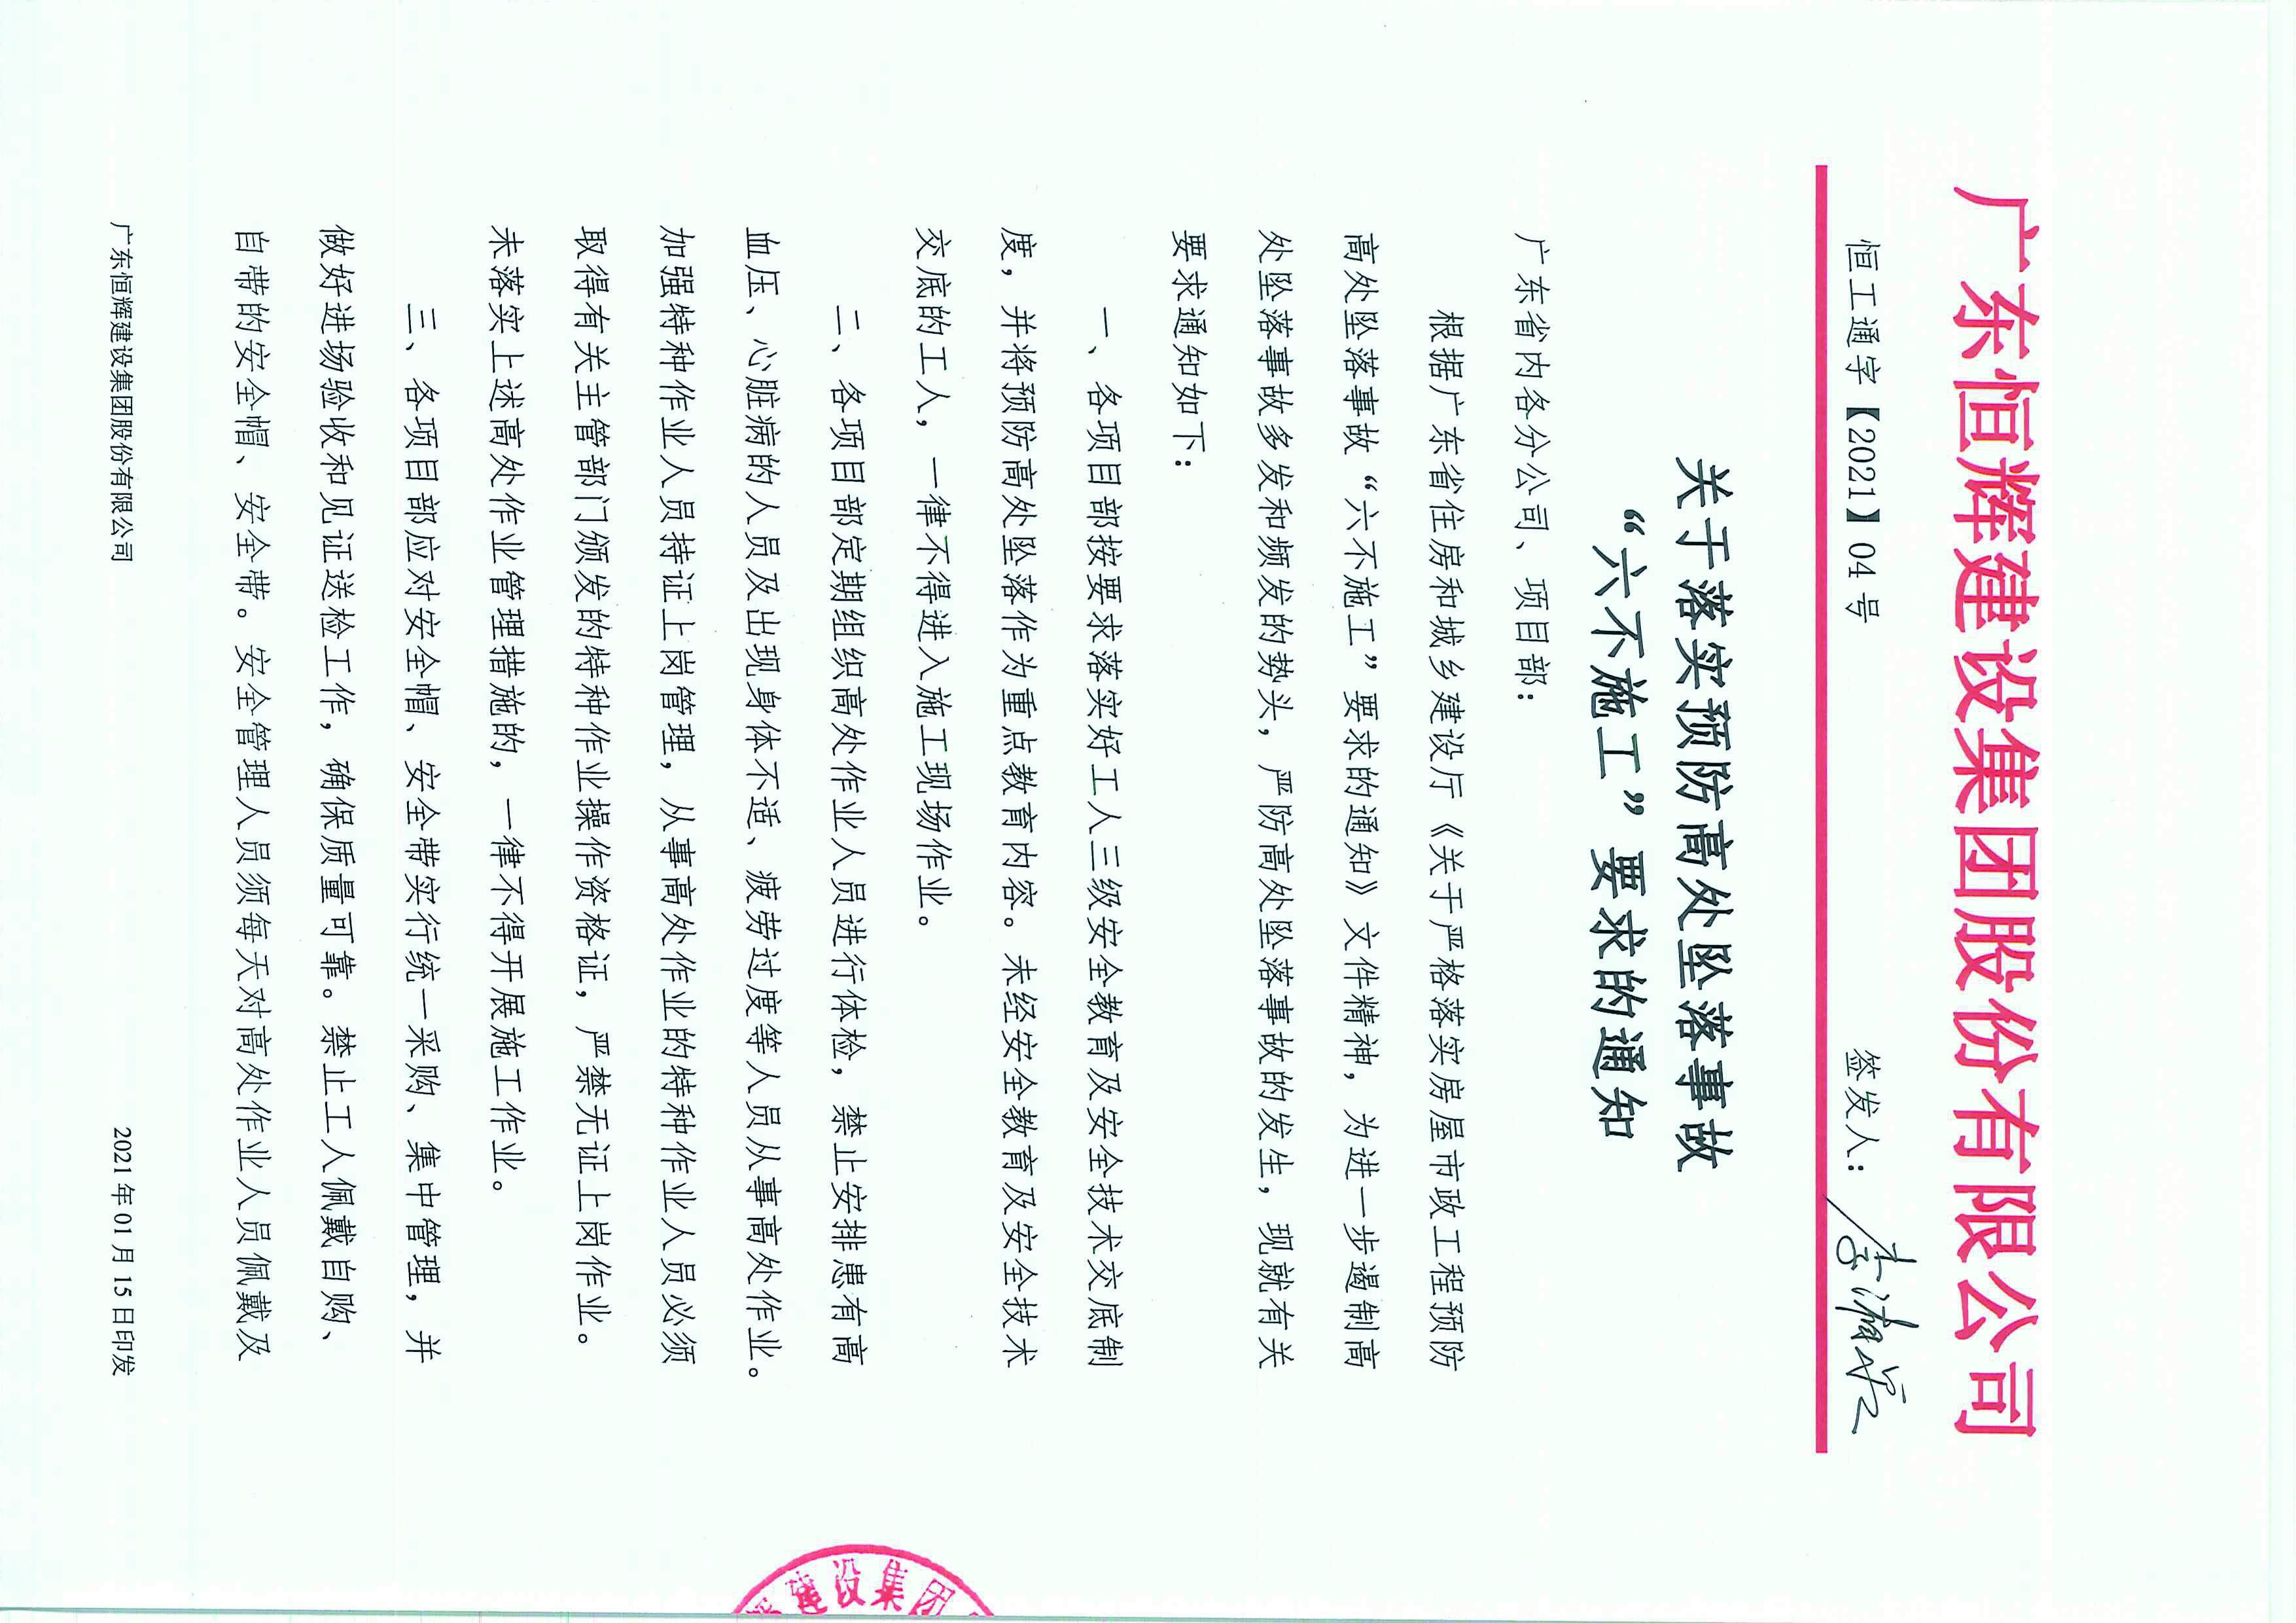 广东恒辉建设集团股份有限公司
恒工通字【2021】04 号 签发人：
关于落实预防高处坠落事故
“六不施工”要求的通知
广东省内各分公司、项目部：
根据广东省住房和城乡建设厅《关于严格落实房屋市政工程预防
高处坠落事故“六不施工”要求的通知》文件精神，为进一步遏制高
处坠落事故多发和频发的势头，严防高处坠落事故的发生，现就有关
要求通知如下：
一、各项目部按要求落实好工人三级安全教育及安全技术交底制
度，并将预防高处坠落作为重点教育内容。未经安全教育及安全技术
交底的工人，一律不得进入施工现场作业。
二、各项目部定期组织高处作业人员进行体检，禁止安排患有高
血压、心脏病的人员及出现身体不适、疲劳过度等人员从事高处作业。
加强特种作业人员持证上岗管理，从事高处作业的特种作业人员必须
取得有关主管部门颁发的特种作业操作资格证，严禁无证上岗作业。
未落实上述高处作业管理措施的，一律不得开展施工作业。
三、各项目部应对安全帽、安全带实行统一采购、集中管理，并
做好进场验收和见证送检工作，确保质量可靠。禁止工人佩戴自购、
自带的安全帽、安全带。安全管理人员须每天对高处作业人员佩戴及
广东恒辉建设集团股份有限公司 2021 年 01 月 15 日印发
建设集团